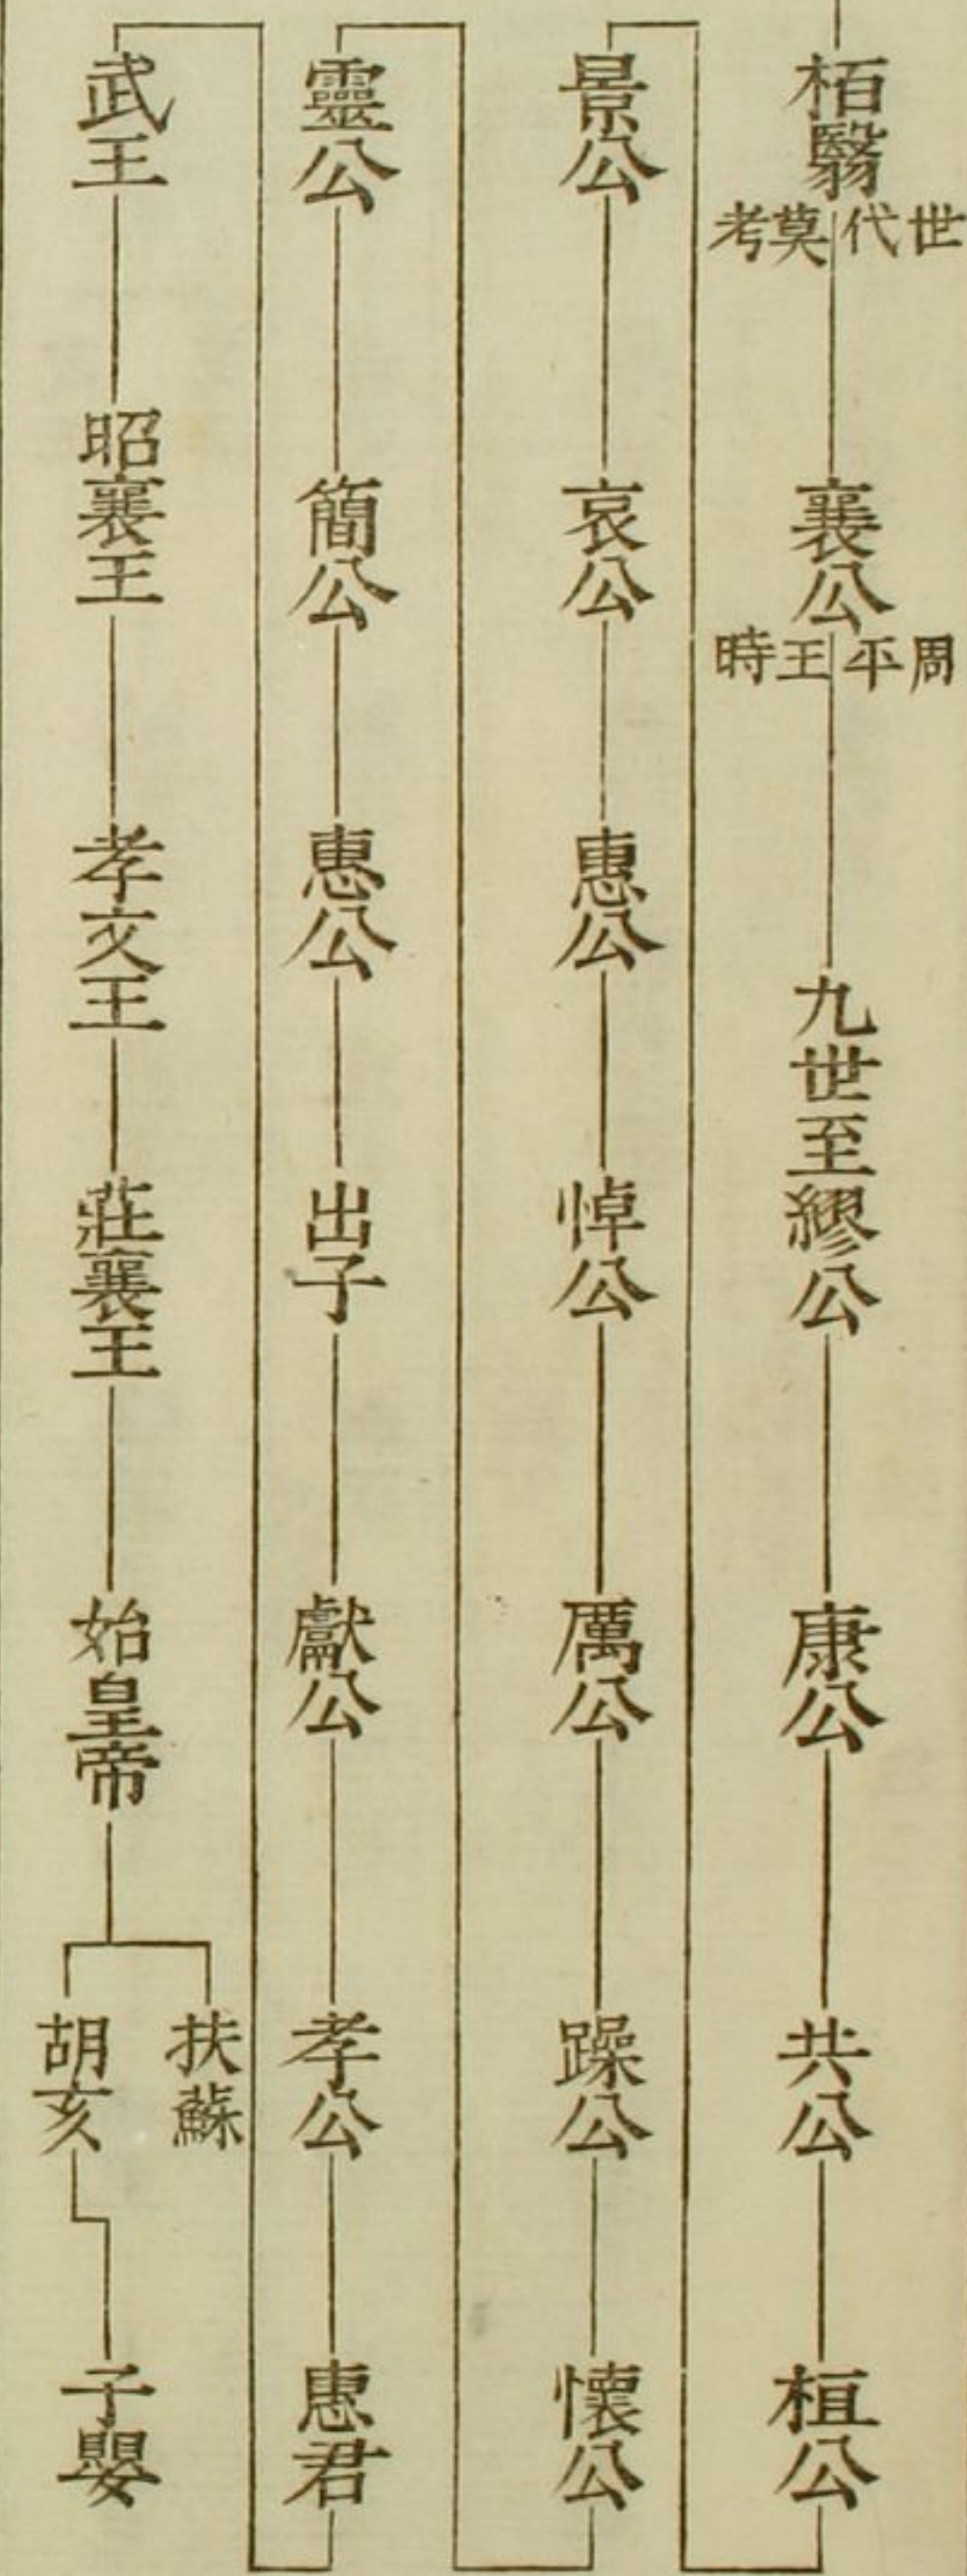 栢翳 世代莫考 襄公 周平王時 九世至繆公 康公 共公 桓公
景公 哀公 惠公 悼公 厲公 躁公 懷公
靈公 簡公 惠公 出子 獻公 孝公 惠君
武王 昭襄王 孝文王 莊襄王 始皇帝 扶蘇 胡亥 子嬰